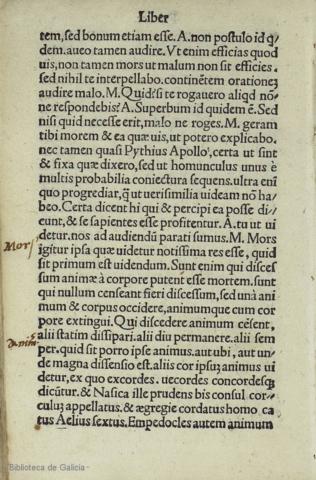 Liber
tem, sed bonum etiam esse. A. non postulo id q̃
dem. aueo tamen audire. Vt enim efficias quod
uis, non tamen mors ut malum non sit efficies.
sed nihil te interpellabo. continẽtem orationeʒ
audire malo. M. Quid? si te rogauero aliqd nõ-
ne respondebis? A. Superbum id quidem ẽ. Sed
nisi quid necesse erit, malo ne roges. M. geram
tibi morem & ea quæ uis, ut potero explicabo.
nec tamen quasi Pythius Apollo, certa ut sint
& fixa quæ dixero, sed ut homunculus unus è
multis probabilia coniectura sequens. ultra eni
quo progrediar, q̃ ut uerisimilia uideam nõ ha-
beo. Certa dicent hi qui & percipi ea posse di-
cunt, & se sapientes esse profitentur. A. tu ut ui
detur. nos ad audiendũ parati sumus. M. Mors
igitur ipsa quæ uidetur notissima res esse, quid
sit primum est uidendum. Sunt enim qui disces
sum animæ à corpore putent esse mortem. sunt
qui nullum censeant fieri discessum, sed unà ani
mum & corpus occidere, animumque cum cor
pore extingui. Qui discedere animum cẽsent,
alii statim dissipari. alii diu permanere. alii sem
per. quid sit porro ipse animus. aut ubi, aut un-
de magna dissensio est. aliis cor ipsuʒ animus ui
detur, ex quo excordes. uecordes concordesq̃
dicũtur. & Nasica ille prudens bis consul cor-
culuʒ appellatus. & ægregie cordatus homo ca
tus Aelius sextus. Empedocles autem animum
Mors
Biblioteca de Galicia